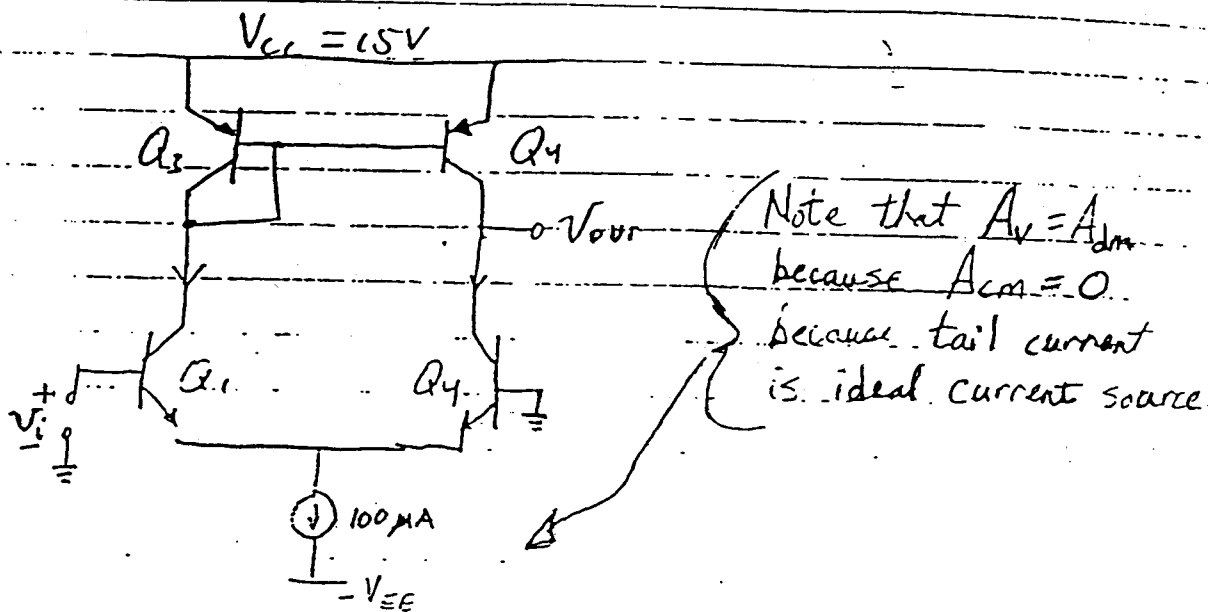 V_CC = 15V
Q3
Q4
Vout
Note that Av = Adm
because Acm = 0
because tail current
is ideal current source
+
vi
-
Q1
Q4
100 μA
-VEE